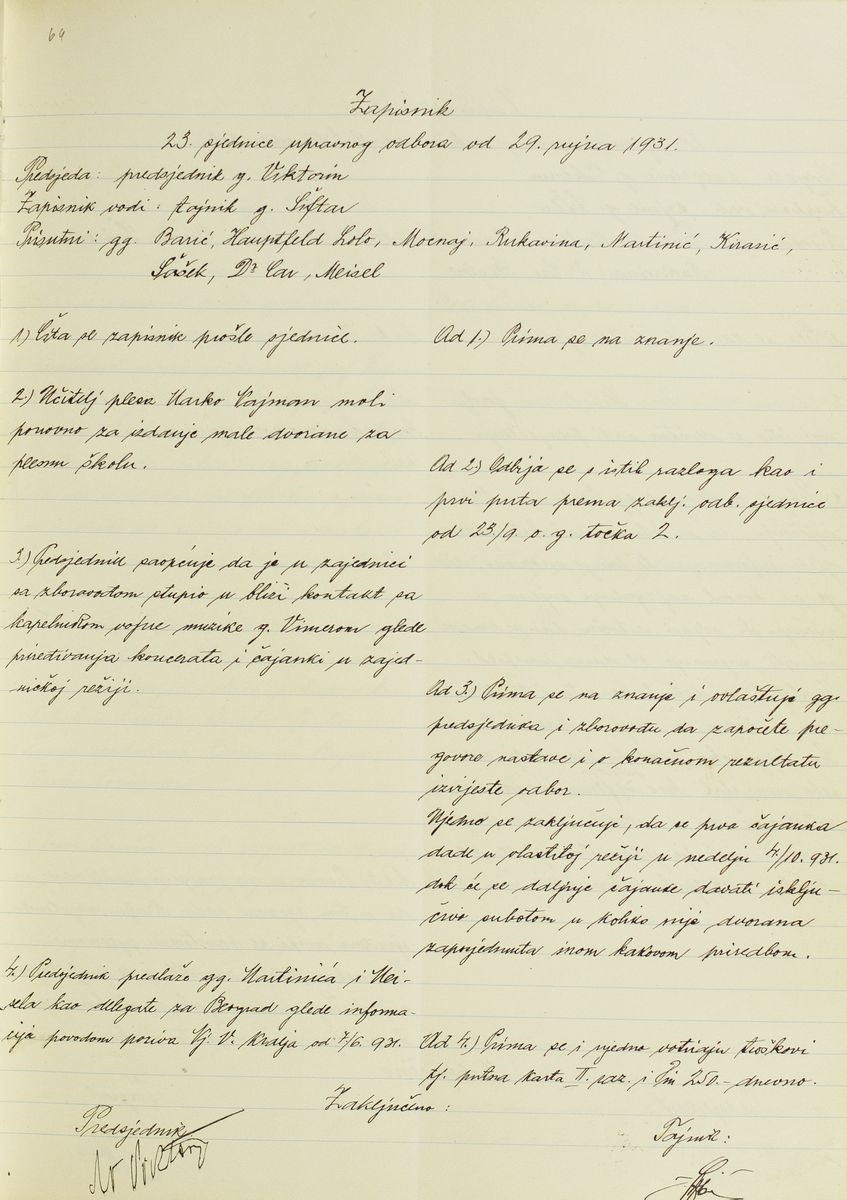 64
Zapisnik
23. sjednice upravnog odbora od 29. rujna 1931.
Predsjeda: predsjednik g. Viktorin
Zapisnik vodi: tajnik g. Šiftar
Prisutni: gg. Barić, Hauptfeld Lolo, Mocnaj, Rukavina, Martinić, Kirasić,
Sášek, Dr Car, Meisel
1) Čita se zapisnik prošle sjednice.
Ad 1.) Prima se na znanje.
2.) Učitelj plesa Marko Vajman moli
ponovno za izdanje male dvorane za
plesnu školu.
Ad 2.) Odbija se s istih razloga kao i
prvi puta prema zaklj. odb. sjednice
od 23/9. o. g. točka 2.
3.) Predsjednik saopćuje da je u zajednici
sa zborovođom stupio u bliži kontakt sa
kapelnikom vojne muzike g. Vimerom glede
priređivanja koncerata i čajanki u zajed-
ničkoj režiji.
Ad 3.) Prima se na znanje i ovlašćuje gg.
predsjednika i zborovođu da započete pre-
govore nastave i o konačnom rezultatu
izvijeste odbor.
Ujedno se zaključuje, da se prva čajanka
dade u vlastitoj režiji u nedelju 4./10. 931.
dok će se daljnje čajanke davati isklju-
čivo subotom u koliko nije dvorana
zaposjednuta inom kakovom priredbom.
4.) Predsjednik predlaže gg. Martinića i Mei-
sela kao delegate za Beograd glede informa-
cija povodom poziva Nj. V. Kralja od 7/6. 931.
Ad 4.) Prima se i ujedno votiraju troškovi
tj. putna karta II. raz. i Din 250.- dnevno.
Zaključeno:
Predsjednik
Tajnik: